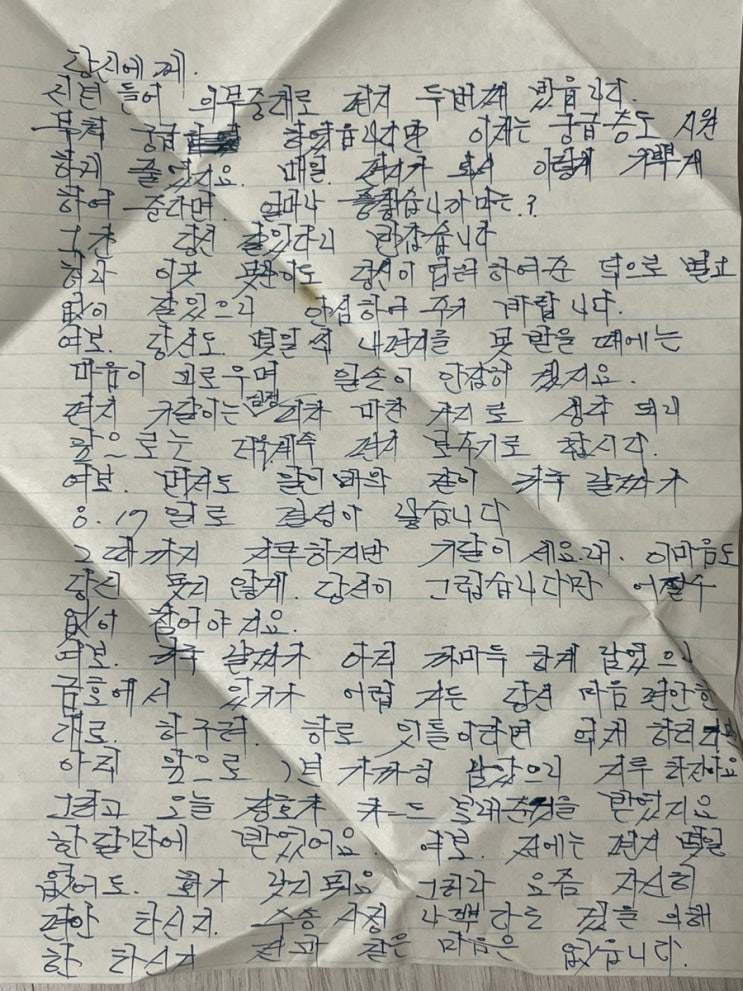 당신에게.
신년 들어 의무중대로 편지 두번채 받읍니다.
무척 궁금 하였습니다만 이제는 궁금증도 시원
하게 풀었지요. 매일 편지가 와서 이렇게 기쁘게
하여 준다면. 얼마나 좋습니까마는.?
그간 당신 잘있다니 반갑습니다
이곳 못난이도 당신이 염려하여준 덕으로 별고
없이 잘있으니 안심하여 주기 바랍니다.
여보. 당신도 몇일씩 내편지를 못 받을 때에는
마음이 괴로우며 일손이 안잡히 겠지요.
편지 기달이는 심정 마찬 가지로 생각 되니
앞으로는 편지 보내기로 합시다.
여보. 먼저도 말한바와 같이 귀국 날짜가
8.17일로 결정이 났습니다
그때까지 지루하지만 기달이세요. 이마음도
당신 못지 않게. 당신이 그립습니다만 어쩔수
없이 참어야지요.
여보. 귀국 날짜가 아직 까마득 하게 남었으니
금호에서 있기가 어렵거든 당신 마음 편안한
대로. 하구려. 하로 잇틀이라면 모르
아직 앞으로 1년 가까히 남았으니 지루 하잔아요
그리고 오늘 카드 보내준것을 받었지요
한달만에 받었어요. 여보. 집에는 편지 몇일
없어도. 화가 낫지 못요 요즘 자신이
편안 하신지. 사정 나쁘다는 것을
한 하신지 전과 같은 마음은 없습니다.